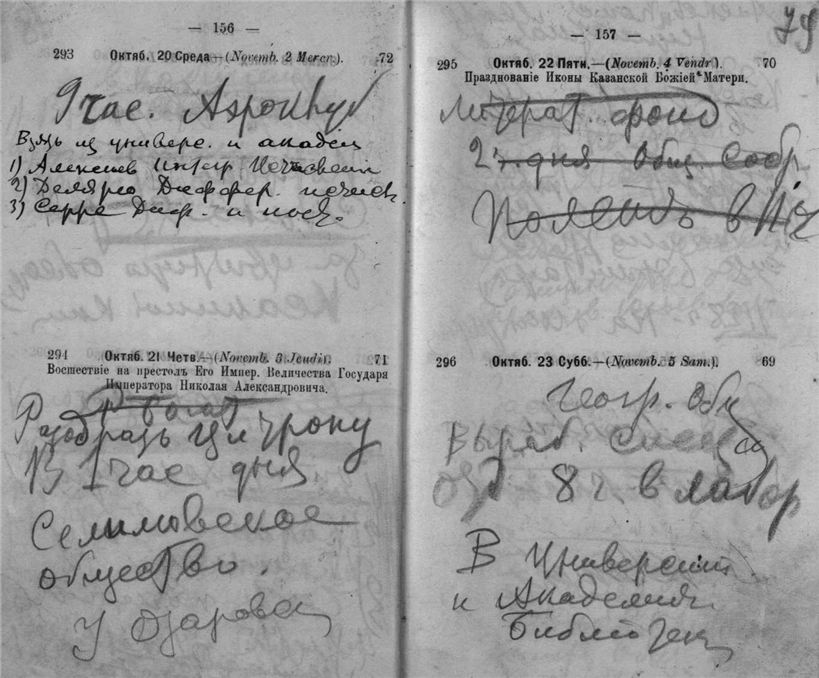 — 156 —
293 Октяб. 20 Среда—(Novemb. 2 Mercr.). 72
9 час. Аэроклуб
Взять из универс. и академ
1) Алексеев Интегр. Исчислен
2) Делярю Диффер. исчисл.
3) Серре Диф. и
294 Октяб. 21 Четв.—(Novemb. 3 Jeudi). 71
Восшествіе на престолъ Его Импер. Величества Государя
Императора Николая Александровича.
Разобрать
В 1 час дня
общество.
У Озаровск
— 157 — 79
295 Октяб. 22 Пятн.—(Novemb. 4 Vendr.). 70
Празднованіе Иконы Казанской Божіей Матери.
Литерат. фонд
2 ч. дня Общ. Собр.
в
296 Октяб. 23 Субб.—(Novemb. 5 Sam.). 69
Геогр. Общ
8 ч. в лабор
В Университ.
и Академич.
Библиотеку